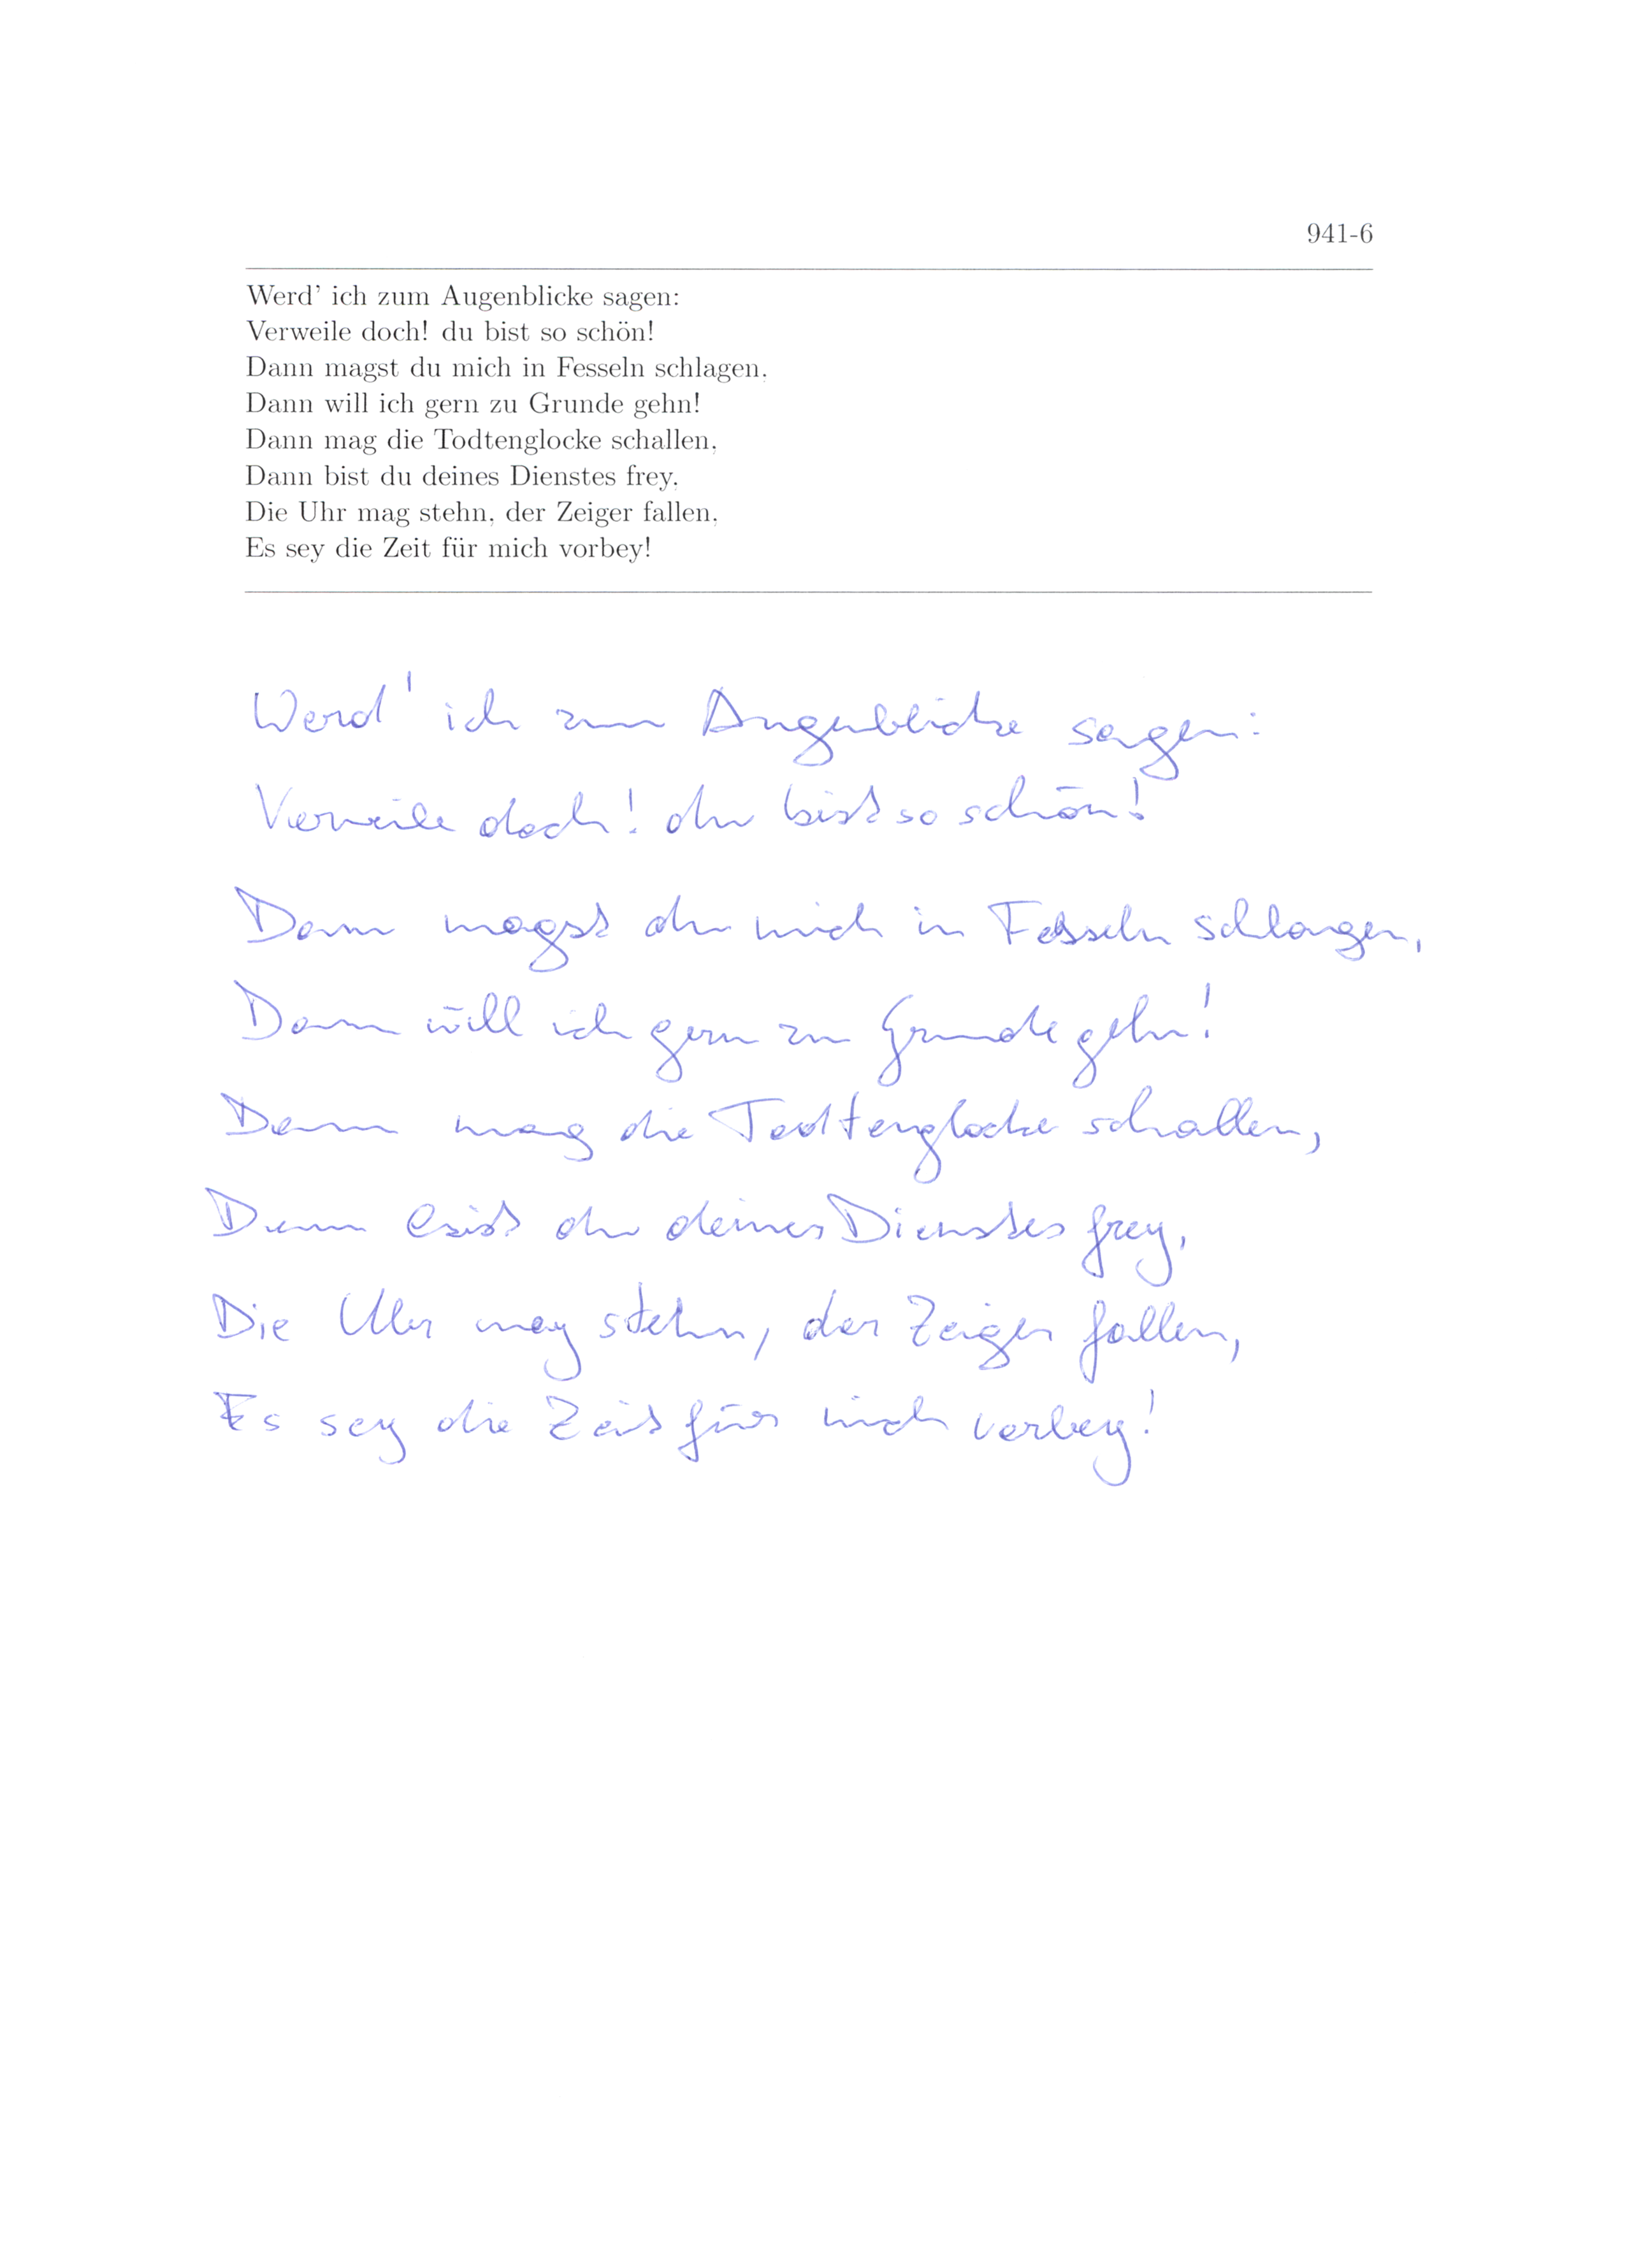 941-6
Werd' ich zum Augenblicke sagen:
Verweile doch! du bist so schön!
Dann magst du mich in Fesseln schlagen,
Dann will ich gern zu Grunde gehn!
Dann mag die Todtenglocke schallen,
Dann bist du deines Dienstes frey,
Die Uhr mag stehn, der Zeiger fallen,
Es sey die Zeit für mich vorbey!
Werd' ich zum Augenblicke sagen:
Verweile doch! du bist so schön!
Dann magst du mich in Fesseln schlangen,
Dann will ich gern zu Grunde gehn!
Dann mag die Todtenglocke schallen,
Dann bist du deines Dienstes frey,
Die Uhr mag stehn, der Zeiger fallen,
Es sey die Zeit für mich vorbey!